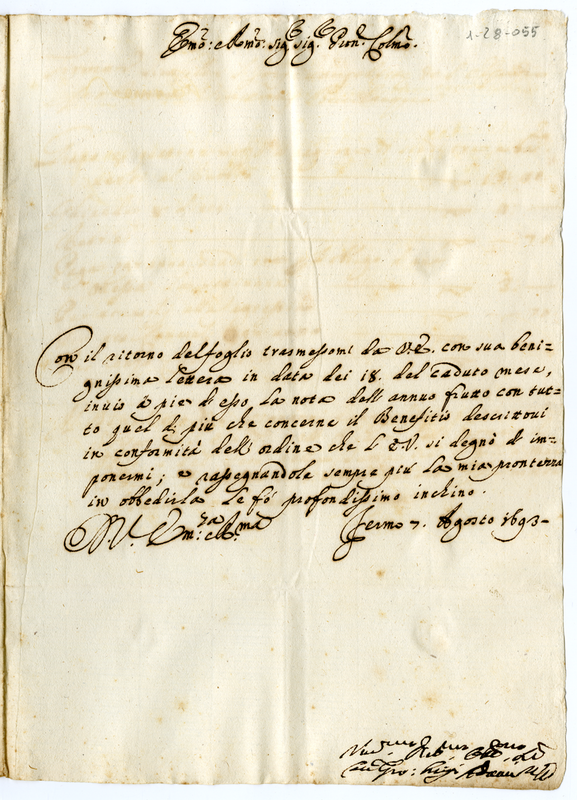 Emo: e Rmo: sig.r sig.r Pron. Colmo.
1-28-055
Con il ritorno del foglio trasmessomi da V.E. con sua beni=
gnissima lettera in data dei 18. del caduto mese,
inuio à pie di esso la nota dell' annuo frutto con tut=
to quel di più che concerne il Benefitio descrittoui
in conformità dell' ordine che l' E.V. si degnò d' im=
ponermi; e rassegnandole sempre più la mia prontezza
in obbedirla le fò profondissimo inchino.
D. V. Em.za Rma
Fermo 7. Agosto 1693-